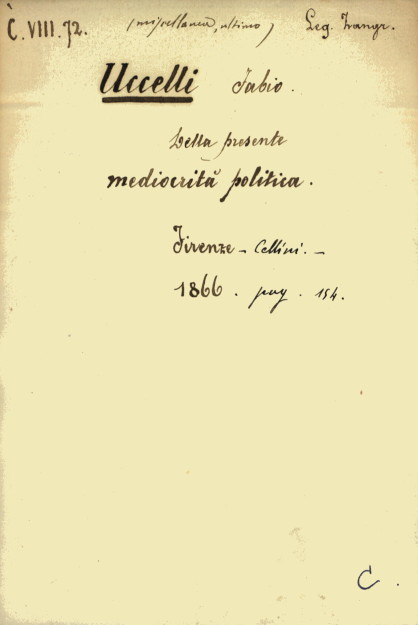 Č. VIII. 72. (miscellanea, ultimo) Leg. Frangr.
Uccelli Fabio.
Della presente
mediocrità politica.
Firenze - Cellini. -
1866. pag. 154.
C.